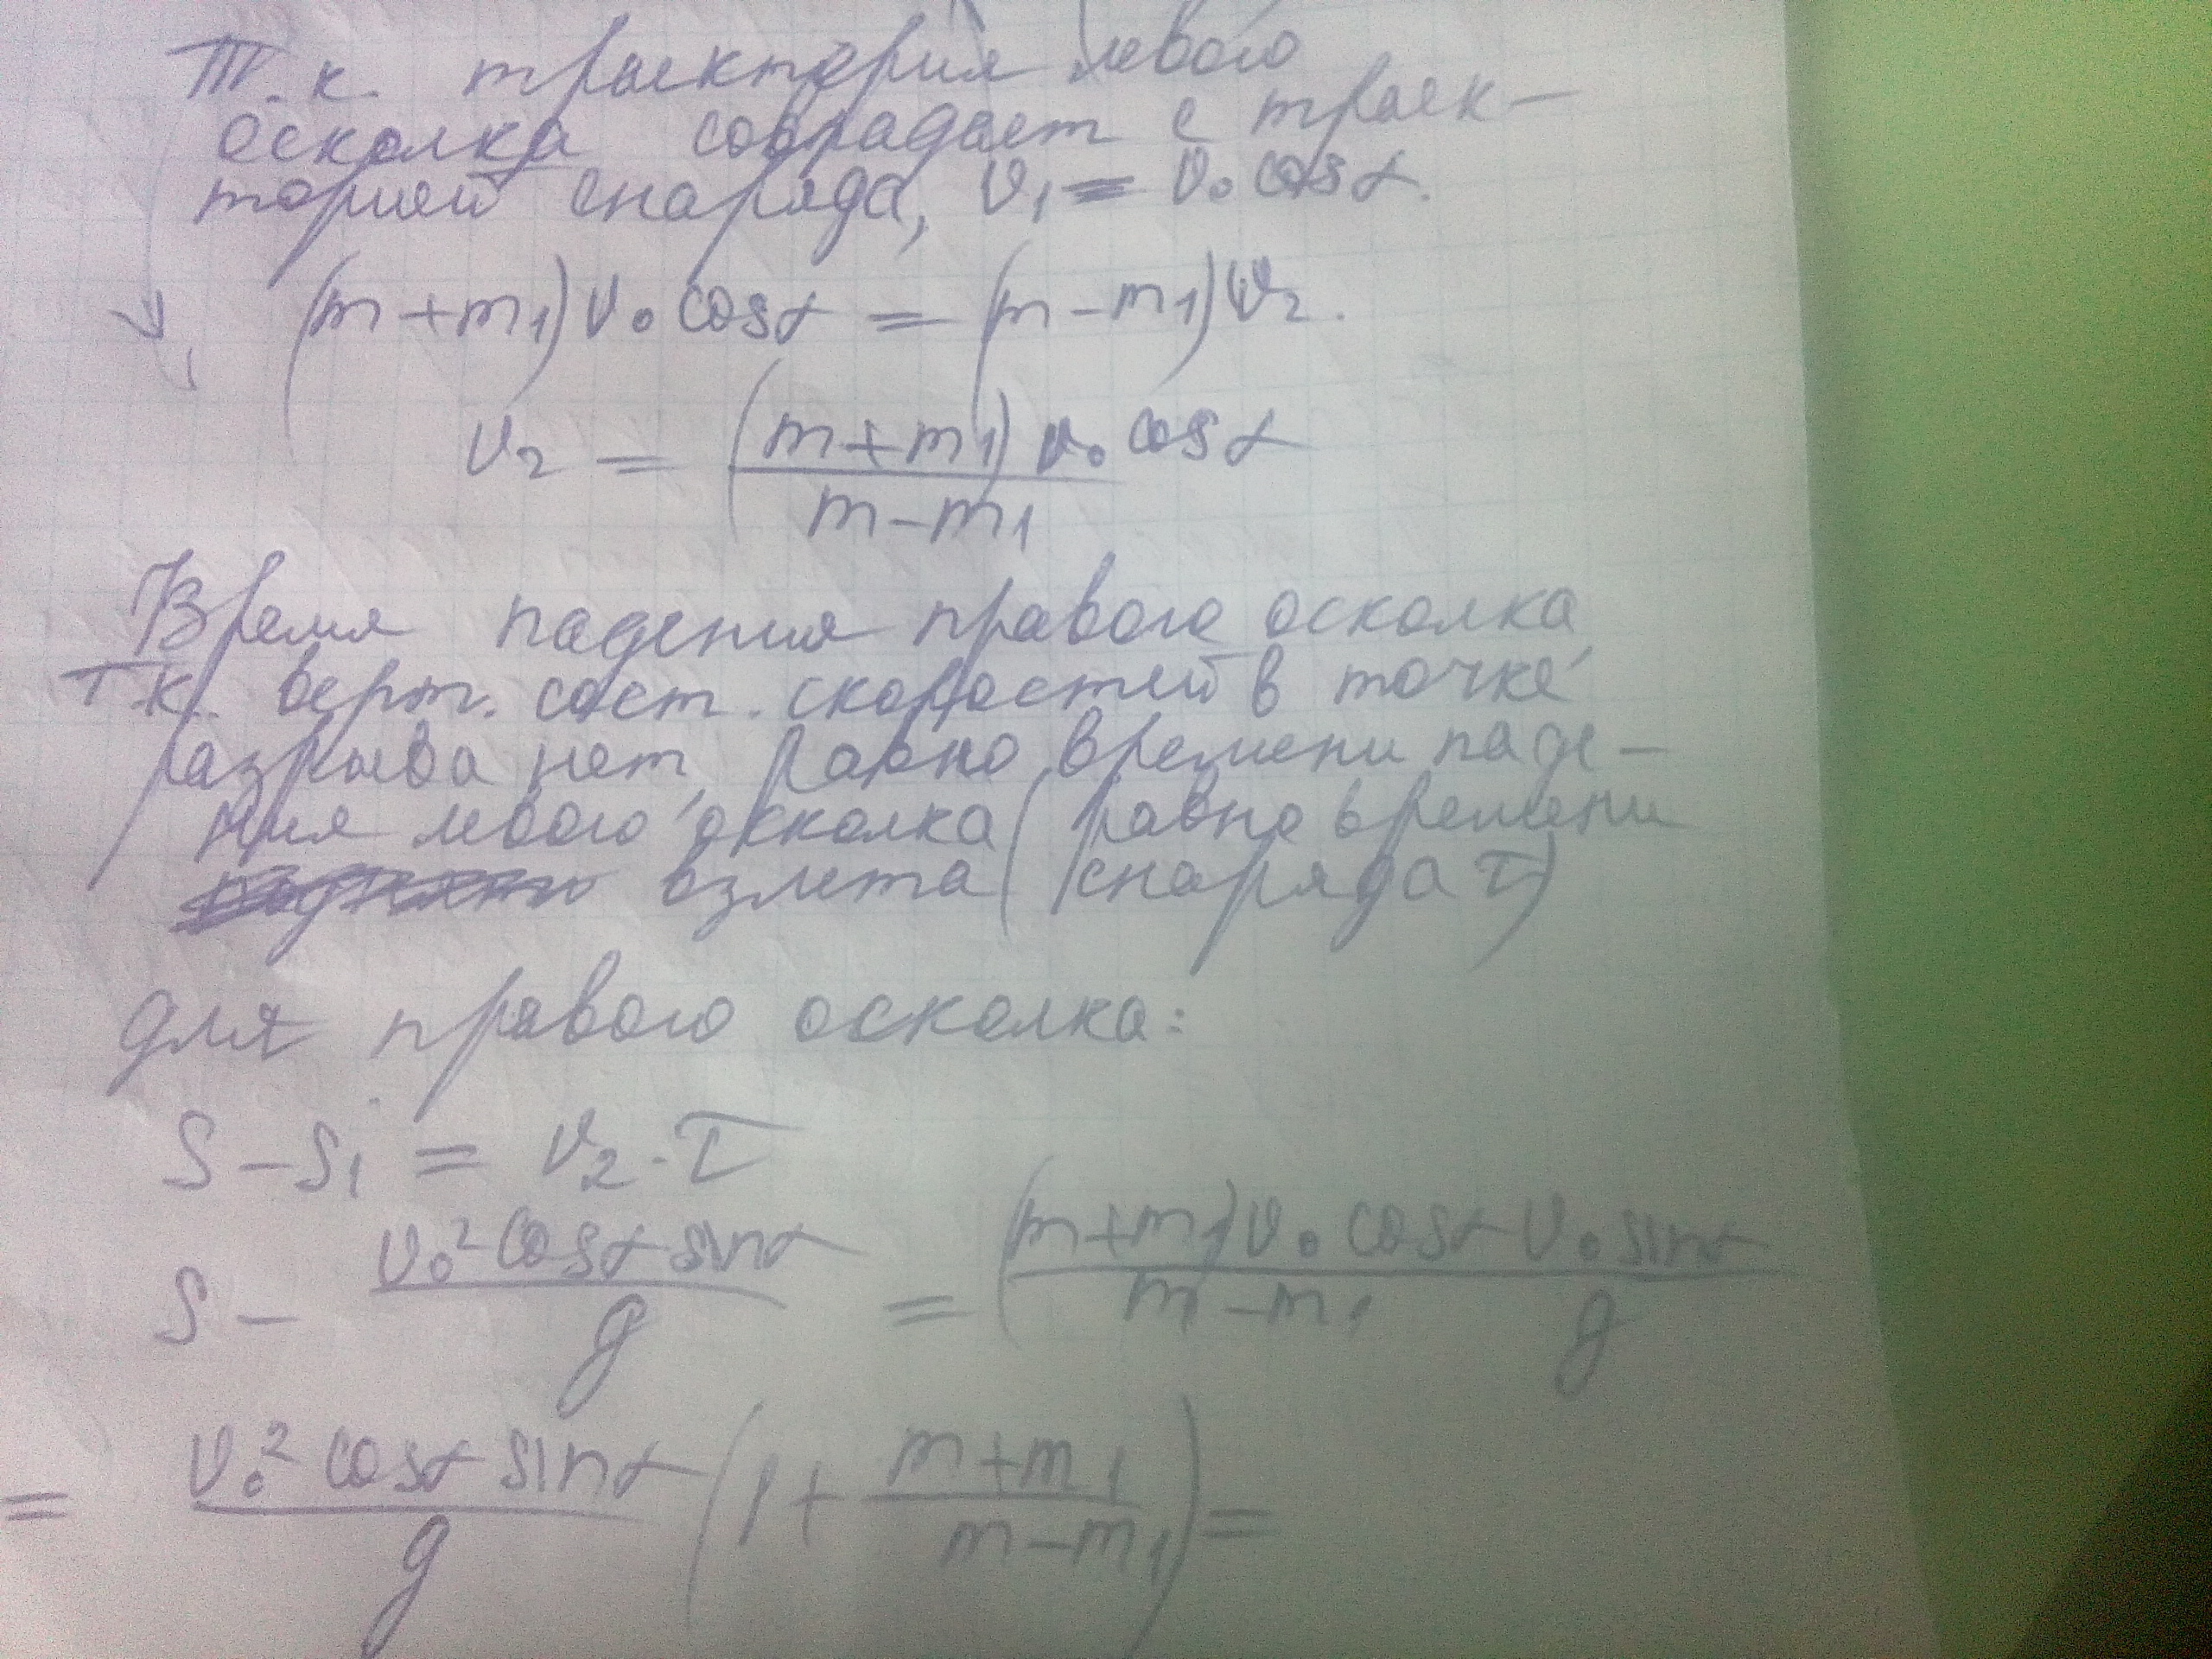 Т.к. траектория левого
осколка совпадает с траек-
торией снаряда, v₁ = v₀ cosα.
(m + m₁) v₀ cosα = (m - m₁) v₂.
v₂ = (m + m₁) v₀ cosα / (m - m₁)
Время падения правого осколка,
т.к. верт. сост. скоростей в точке
разрыва нет, равно времени паде-
ния левого осколка (равно времени
взлета снаряда τ)
для правого осколка:
S - S₁ = v₂ · τ
S - v₀² cosα sinα / g = (m + m₁) v₀ cosα v₀ sinα / (m - m₁) g
= v₀² cosα sinα / g (1 + (m + m₁) / (m - m₁)) =